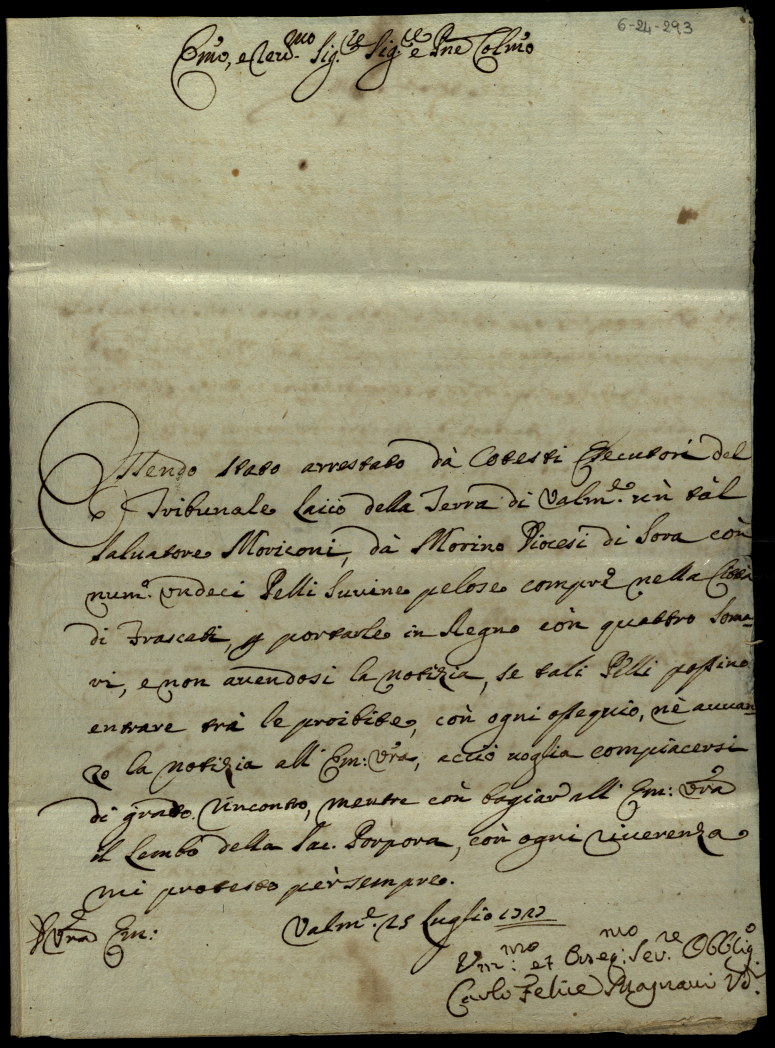 6-24-293
Em̃o, e Rev.mo Sig.re Sig.re e Pne Colmo
Essendo stato arrestato dà Cotesti Esecutori del
Tribunale Laico della Terra di Valm.e un tàl
Salvatore Moriconi, dà Morino Diocesi di Sora con
num.o undeci Pelli suvine pelose compre nella Città
di Frascati, p portarle in Regno còn quattro Soma-
ri, e non avendosi la notizia, se tali Pelli possino
entrare trà le proibite, còn ogni ossequio, nè avvan-
zo la notizia all' Em: Vr̃a, acciò voglia compiacersi
di grado. l'incontro, mentre còn bagiar all' Em: Vr̃a
il Lembo della Sac. Porpora, còn ogni riverenza
mi protesto pèr sempre.
Vr̃a Em: Valm.e 25 Luglio
Um.mo et Osseq.mo Ser.re Obblig.o
Carlo Felice Magnani